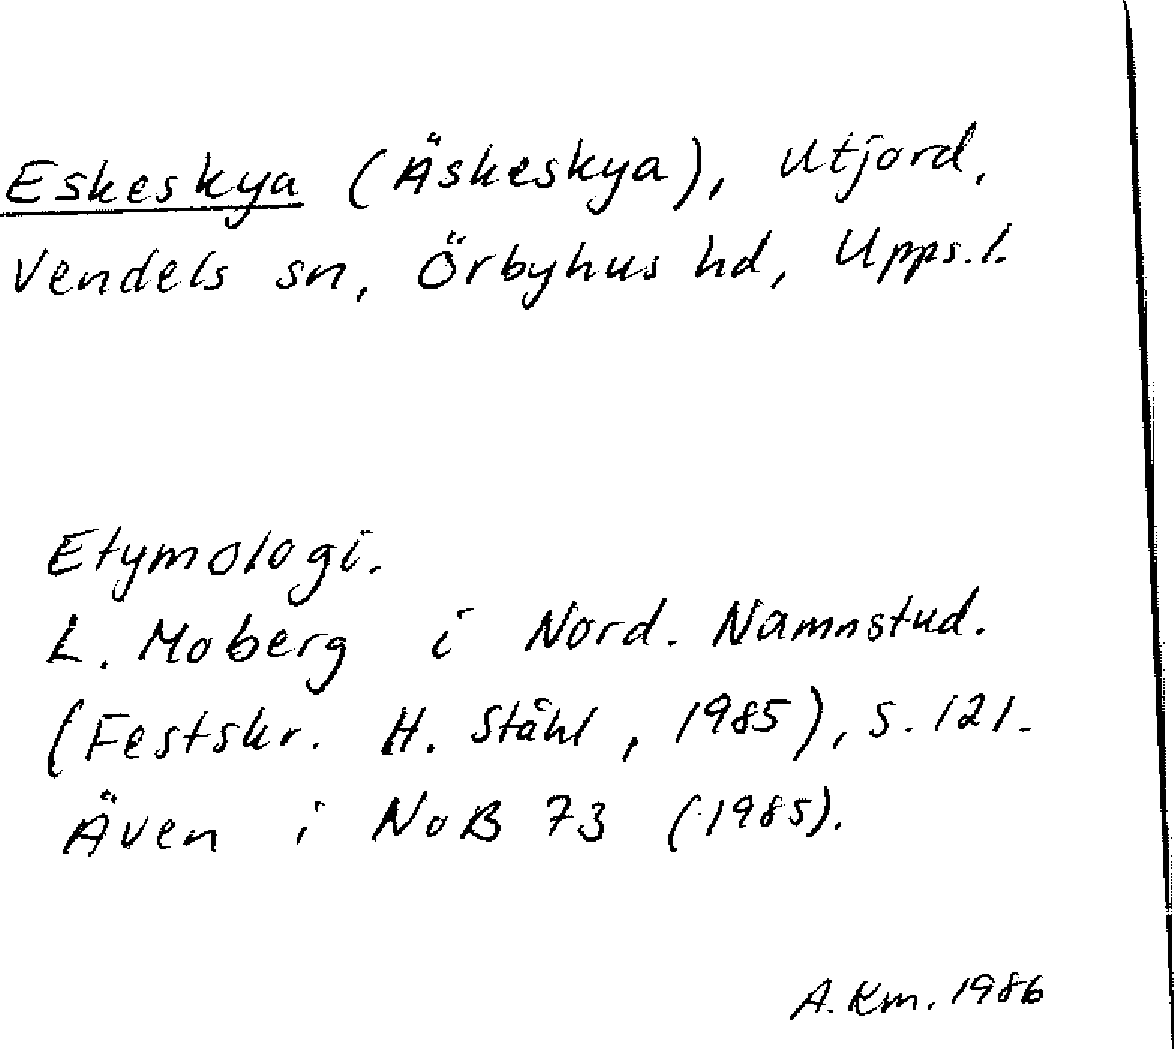 Eskeskya (Äskeskya), utjord,
Vendels sn, Örbyhus hd, Upps.l.
Etymologi.
L. Moberg i Nord. Namnstud.
(Festskr. H. Ståhl, 1985), s. 121.
Även i NoB 73 (1985).
A. Km. 1986